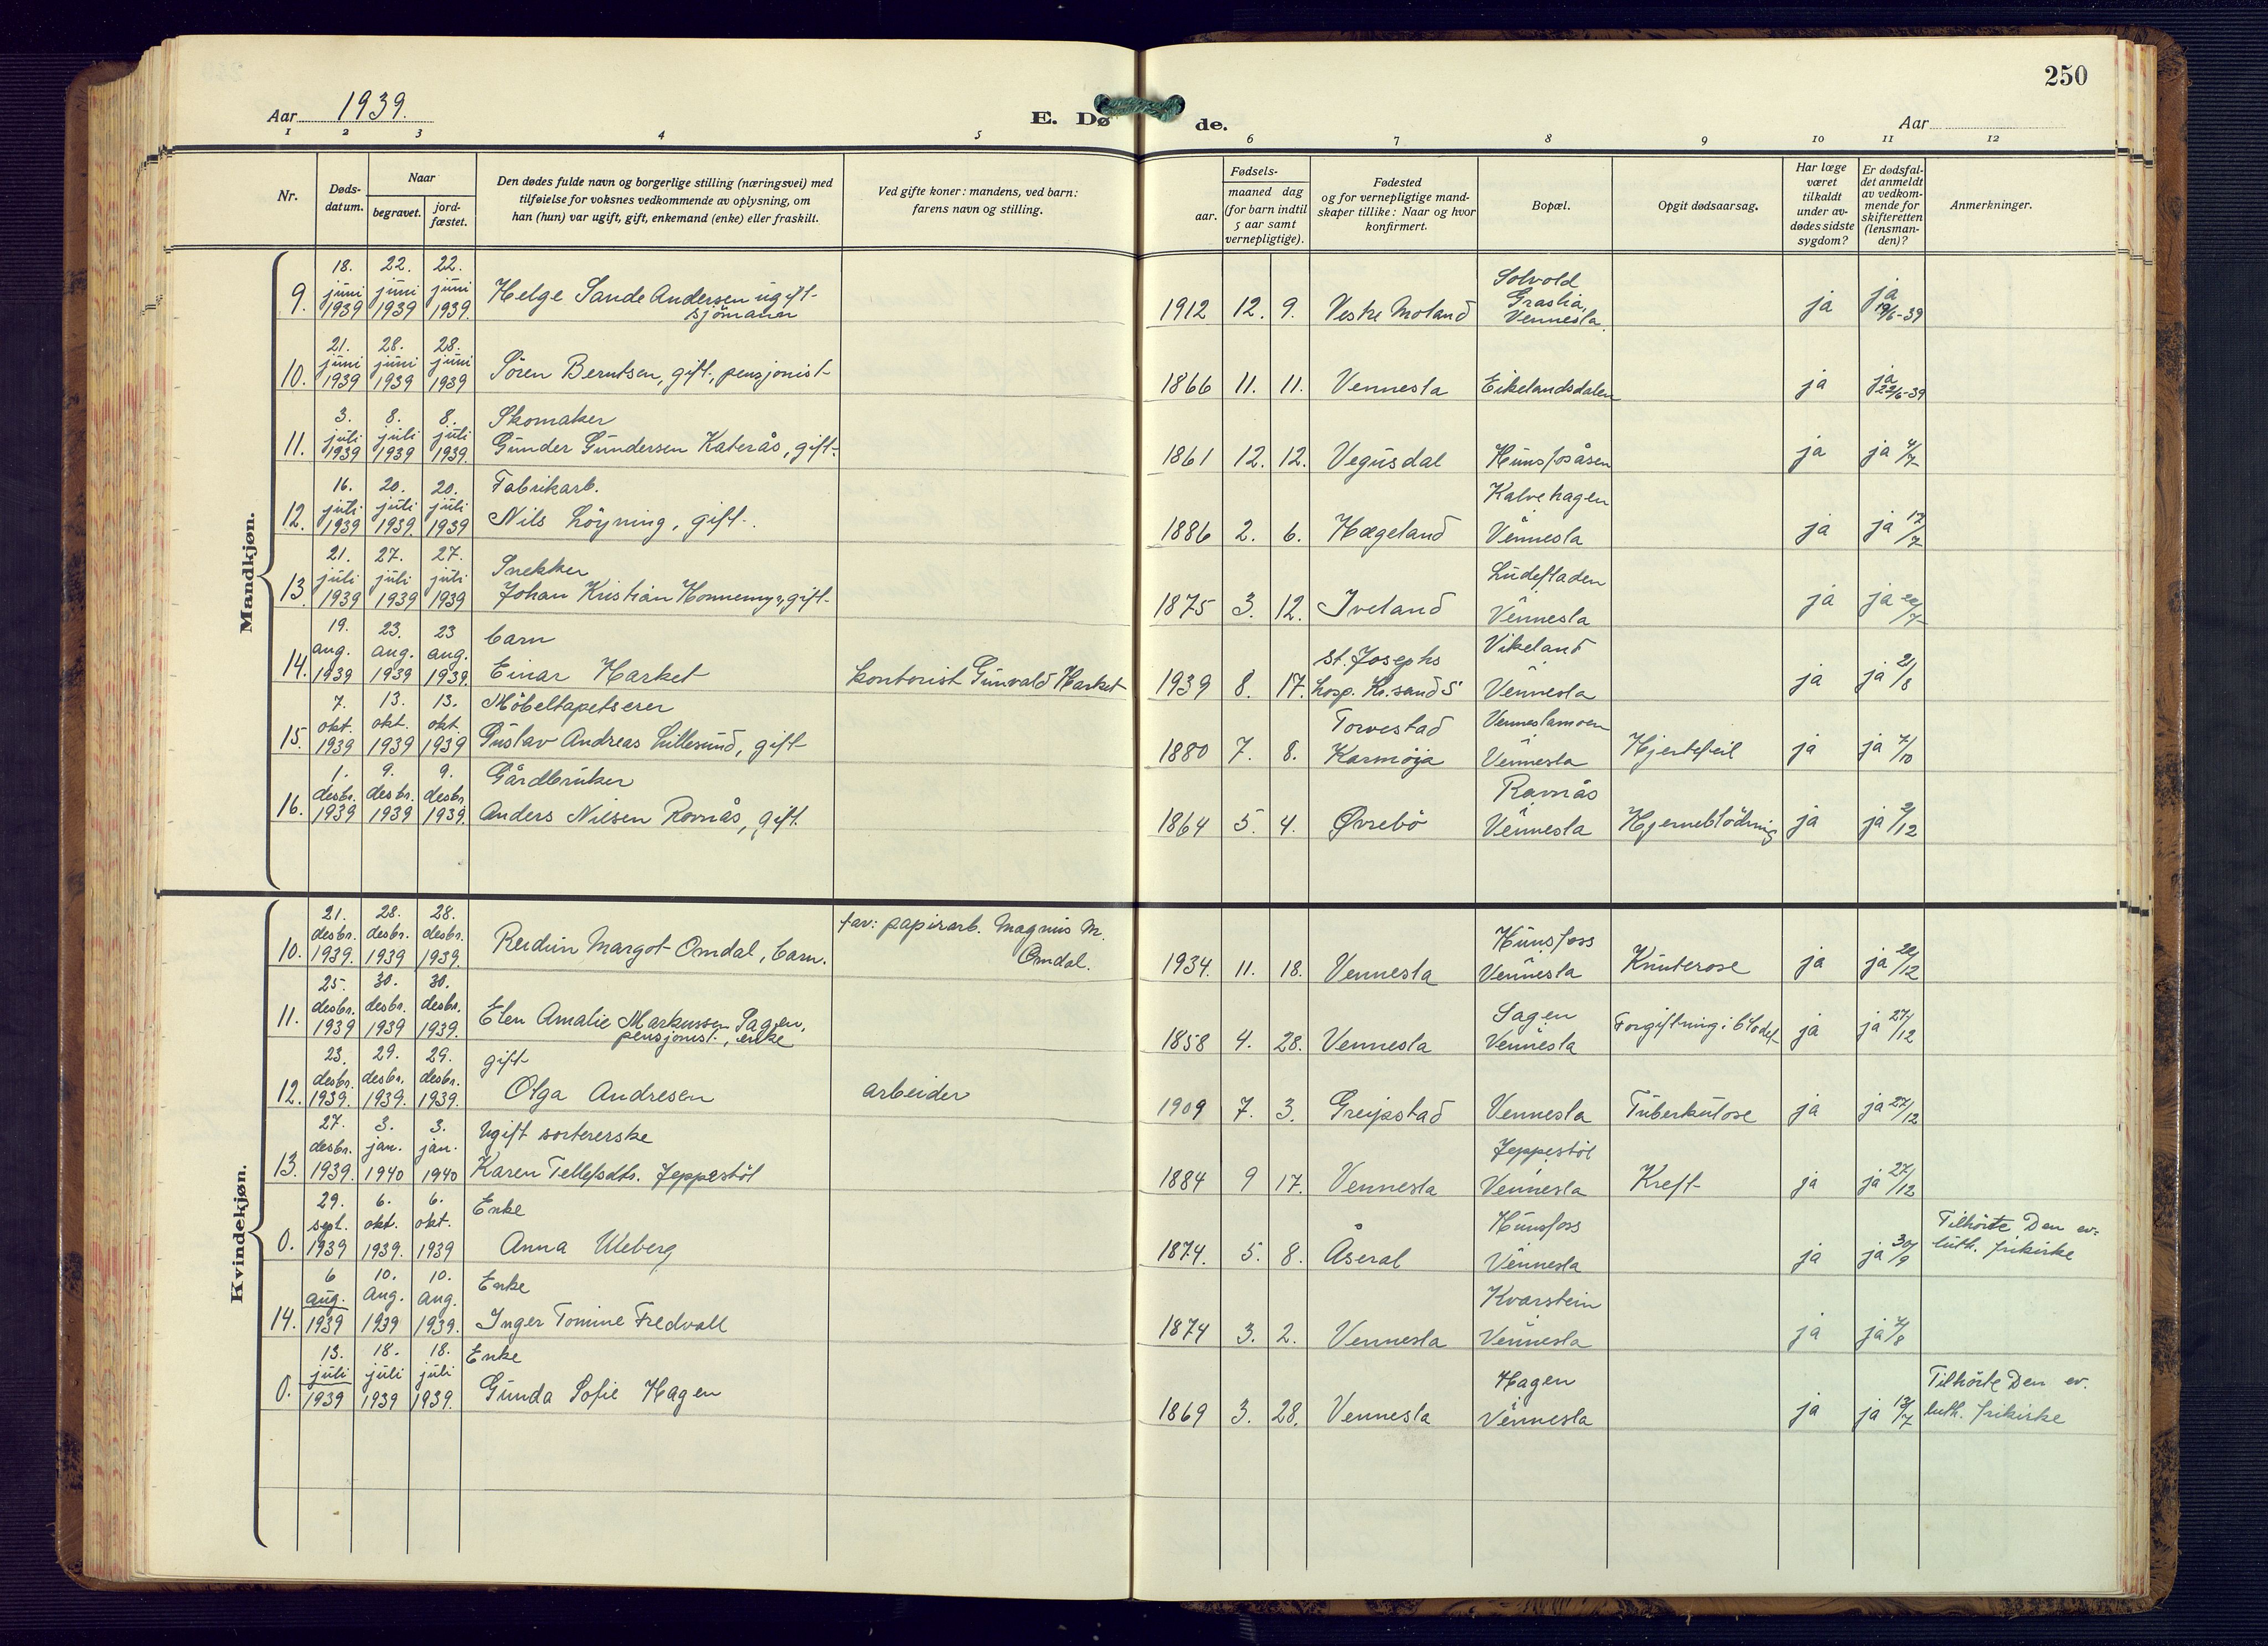 250
Aar 1939.
E. Døde.
Aar
1 2 3 4 5 6 7 8 9 10 11 12
Nr.
Døds-
datum.
Naar
begravet.
jord-
fæstet.
Den dødes fulde navn og borgerlige stilling (næringsvei) med
tilføielse for voksnes vedkommende av oplysning, om
han (hun) var ugift, gift, enkemand (enke) eller fraskilt.
Ved gifte koner: mandens, ved barn:
farens navn og stilling.
Fødsels-
aar.
maaned dag
(for barn indtil
5 aar samt
vernepligtige).
Fødested
og for vernepligtige mand-
skaper tillike: Naar og hvor
konfirmert.
Bopæl.
Opgit dødsaarsag.
Har læge
været
tilkaldt
under av-
dødes sidste
sygdom?
Er dødsfal-
det anmeldt
av vedkom-
mende for
skifteretten
(lensman-
den)?
Anmerkninger.
Mandkjøn.
9. 18. juni 1939 22. juni 1939 22. juni 1939. Helge Sande Andersen ugift
sjömann
1912 12. 9. Vestre Moland Solvold
Graslia,
Vennesla. ja ja 19/6-39
10. 21. juni 1939 28. juni 1939 28. juni 1939 Sören Berntsen, gift, pensjonist
1866 11. 11. Vennesla Eikelandsdalen ja ja 22/6-39
11. 3. juli 1939 8. juli 1939 8. juli 1939. Skomaker
Gunder Gundersen Katerås, gift.
1861 12. 12. Vegusdal Hunsfosåsen ja ja 4/7
12. 16. juli 1939 20. juli 1939 20. juli 1939 Fabrikarb.
Nils Löyning, gift.
1886 2. 6. Hægeland Kalvehagen
Vennesla ja ja 17/7
13. 21. juli 1939 27. juli 1939 27. juli 1939 Snekker
Johan Kristian Honnemyr, gift.
1875 3. 12. Iveland Ludefladen
Vennesla ja ja 22/7
14. 19. aug. 1939 23. aug. 1939 23 aug. 1939. barn
Einar Harket kontorist Gunvald Harket
1939 8. 17. St. Josephs
hosp. Kr.sand S Vikeland
Vennesla ja ja 21/8
15. 7. okt. 1939 13. okt. 1939 13. okt 1939 Möbeltapetserer
Gustav Andreas Lillesund, gift
1880 7. 8. Torvestad
Karmöya Venneslamoen
Vennesla Hjertefeil ja ja 7/10
16. 1. desbr. 1939 9. desbr. 1939 9. desbr 1939. Gårdbruker
Anders Nilsen Rovnås, gift.
1864 5. 4. Øvrebö Ravnås
Vennesla Hjerneblödning ja ja 2/12
Kvindekjøn.
10. 21. desbr. 1939. 28. desbr. 1939 28. desbr. 1939. Reidun Margot Omdal, barn. far: papirarb. Magnus M.
Omdal.
1934. 11. 18. Vennesla Hunsfoss
Vennesla Knuterose ja ja 22/12
11. 25. desbr. 1939 30. desbr. 1939 30. desbr. 1939. Elen Amalie Markussen Sagen,
pensjonist, enke
1858 4. 28. Vennesla Sagen
Vennesla Forgiftning i blodet ja ja 27/12
12. 23. desbr. 1939. 29. desbr. 1939. 29. desbr. 1939. gift
Olga Andresen arbeider
1909 7. 3. Greipstad Vennesla Tuberkulose ja ja 27/12
13. 27. desbr. 1939. 3. jan. 1940 3. jan. 1940 Ugift sortererske
Karen Tellefsdtr. Jeppestöl
1884 9 17. Vennesla Jeppestöl
Vennesla Kreft ja ja 27/12
0. 29. sept. 1939 6. okt. 1939. 6. okt. 1939 Enke
Anna Uleberg
1874. 5. 8. Åseral Hunsfoss
Vennesla ja ja 30/9 Tilhörte Den ev-
luth. frikirke
14. 6 aug. 1939 10. Aug. 1939 10. Aug. 1939. Enke
Inger Tomine Fredvall
1874 3. 2. Vennesla Kvarstein
Vennesla ja ja 7/8
0. 13. juli 1939 18. juli 1939 18. juli 1939. Enke
Gunda Sofie Hagen
1869 3. 28. Vennesla Hagen
Vennesla ja ja 13/7 Tilhörte Den ev.
luth. frikirke